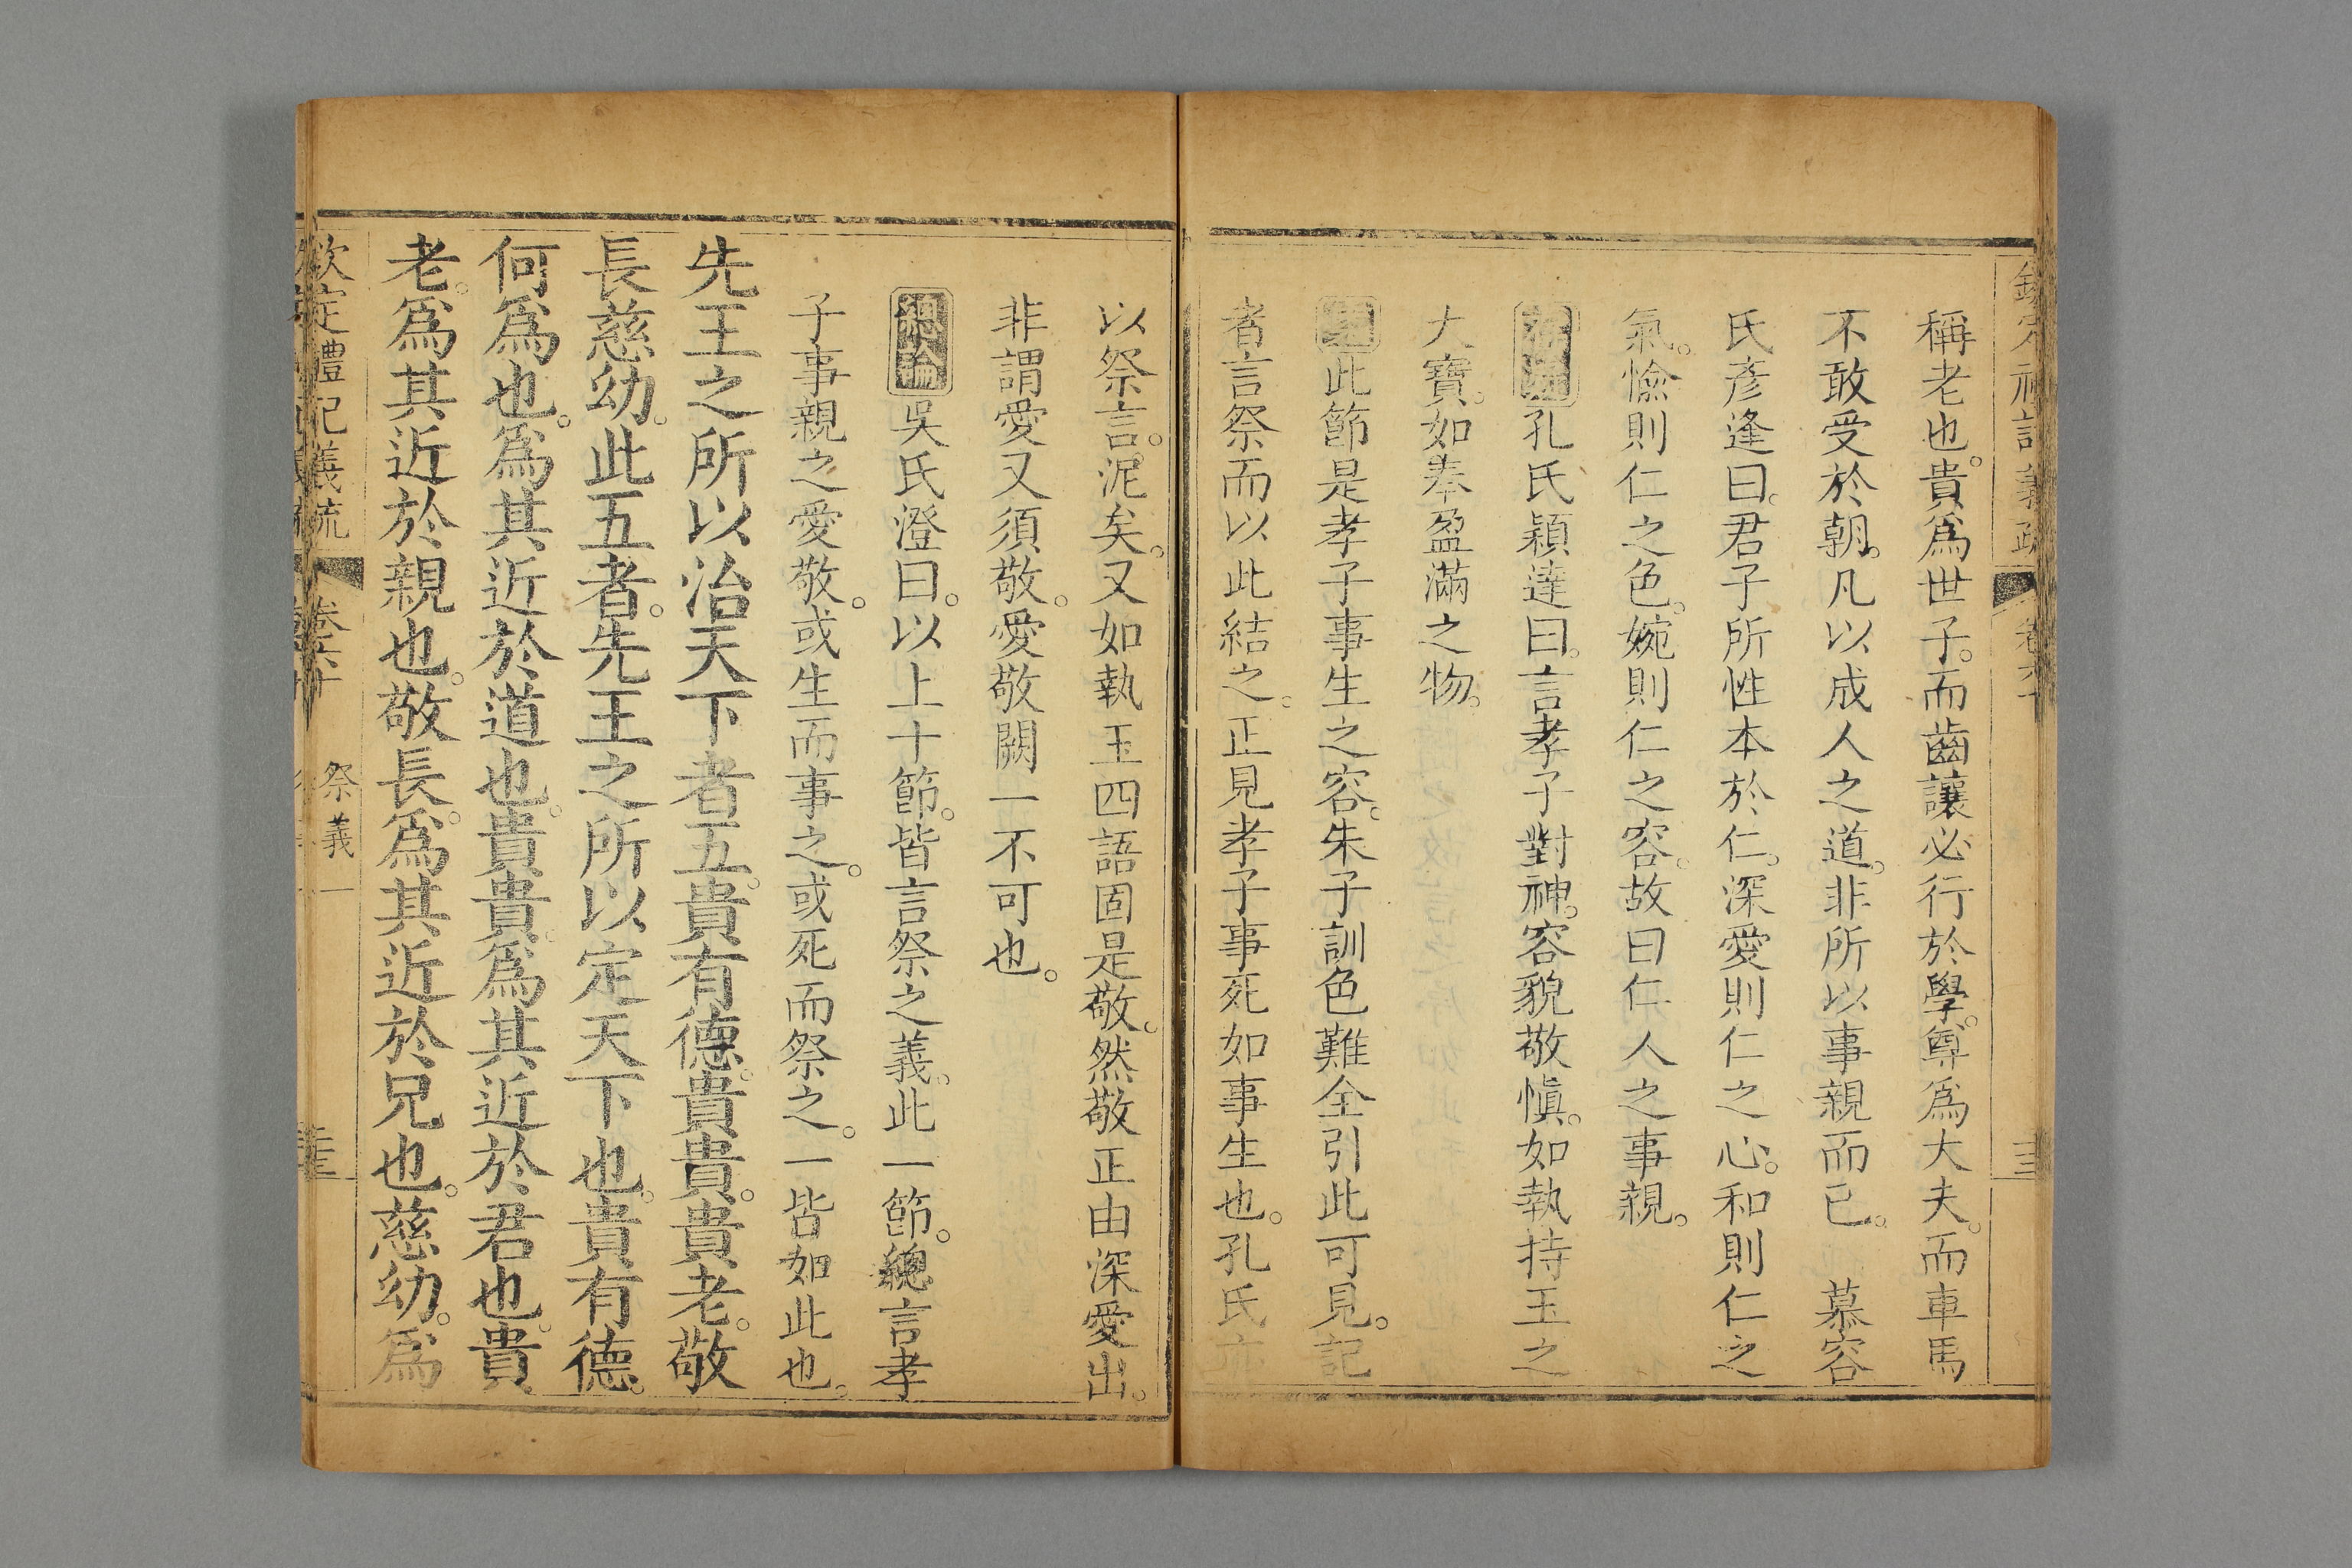 稱老也。貴爲世子。而齒讓必行於學。尊爲大夫。而車馬
不敢受於朝。凡以成人之道。非所以事親而已。 慕容
氏彦逢曰。君子所性本於仁。深愛則仁之心。和則仁之
氣。愉則仁之色。婉則仁之容。故曰仁人之事親。
孔氏穎達曰。言孝子對神。容貌敬愼。如執持玉之
大寶。如奉盈滿之物。
此節是孝子事生之容。朱子訓色難全引此可見。記
者言祭而以此結之。正見孝子事死如事生也。孔氏亦
以祭言。泥矣。又如執玉四語固是敬。然敬正由深愛出。
非謂愛又須敬。愛敬闕一不可也。
總論吳氏澄曰。以上十節。皆言祭之義。此一節。總言孝
子事親之愛敬。或生而事之。或死而祭之。一皆如此也。
先王之所以治天下者五。貴有德。貴貴。貴老。敬
長慈幼。此五者。先王之所以定天下也。貴有德。
何爲也。爲其近於道也。貴貴。爲其近於君也。貴
老。爲其近於親也。敬長。爲其近於兄也。慈幼。爲
欽定禮記義疏 卷六十 祭義一